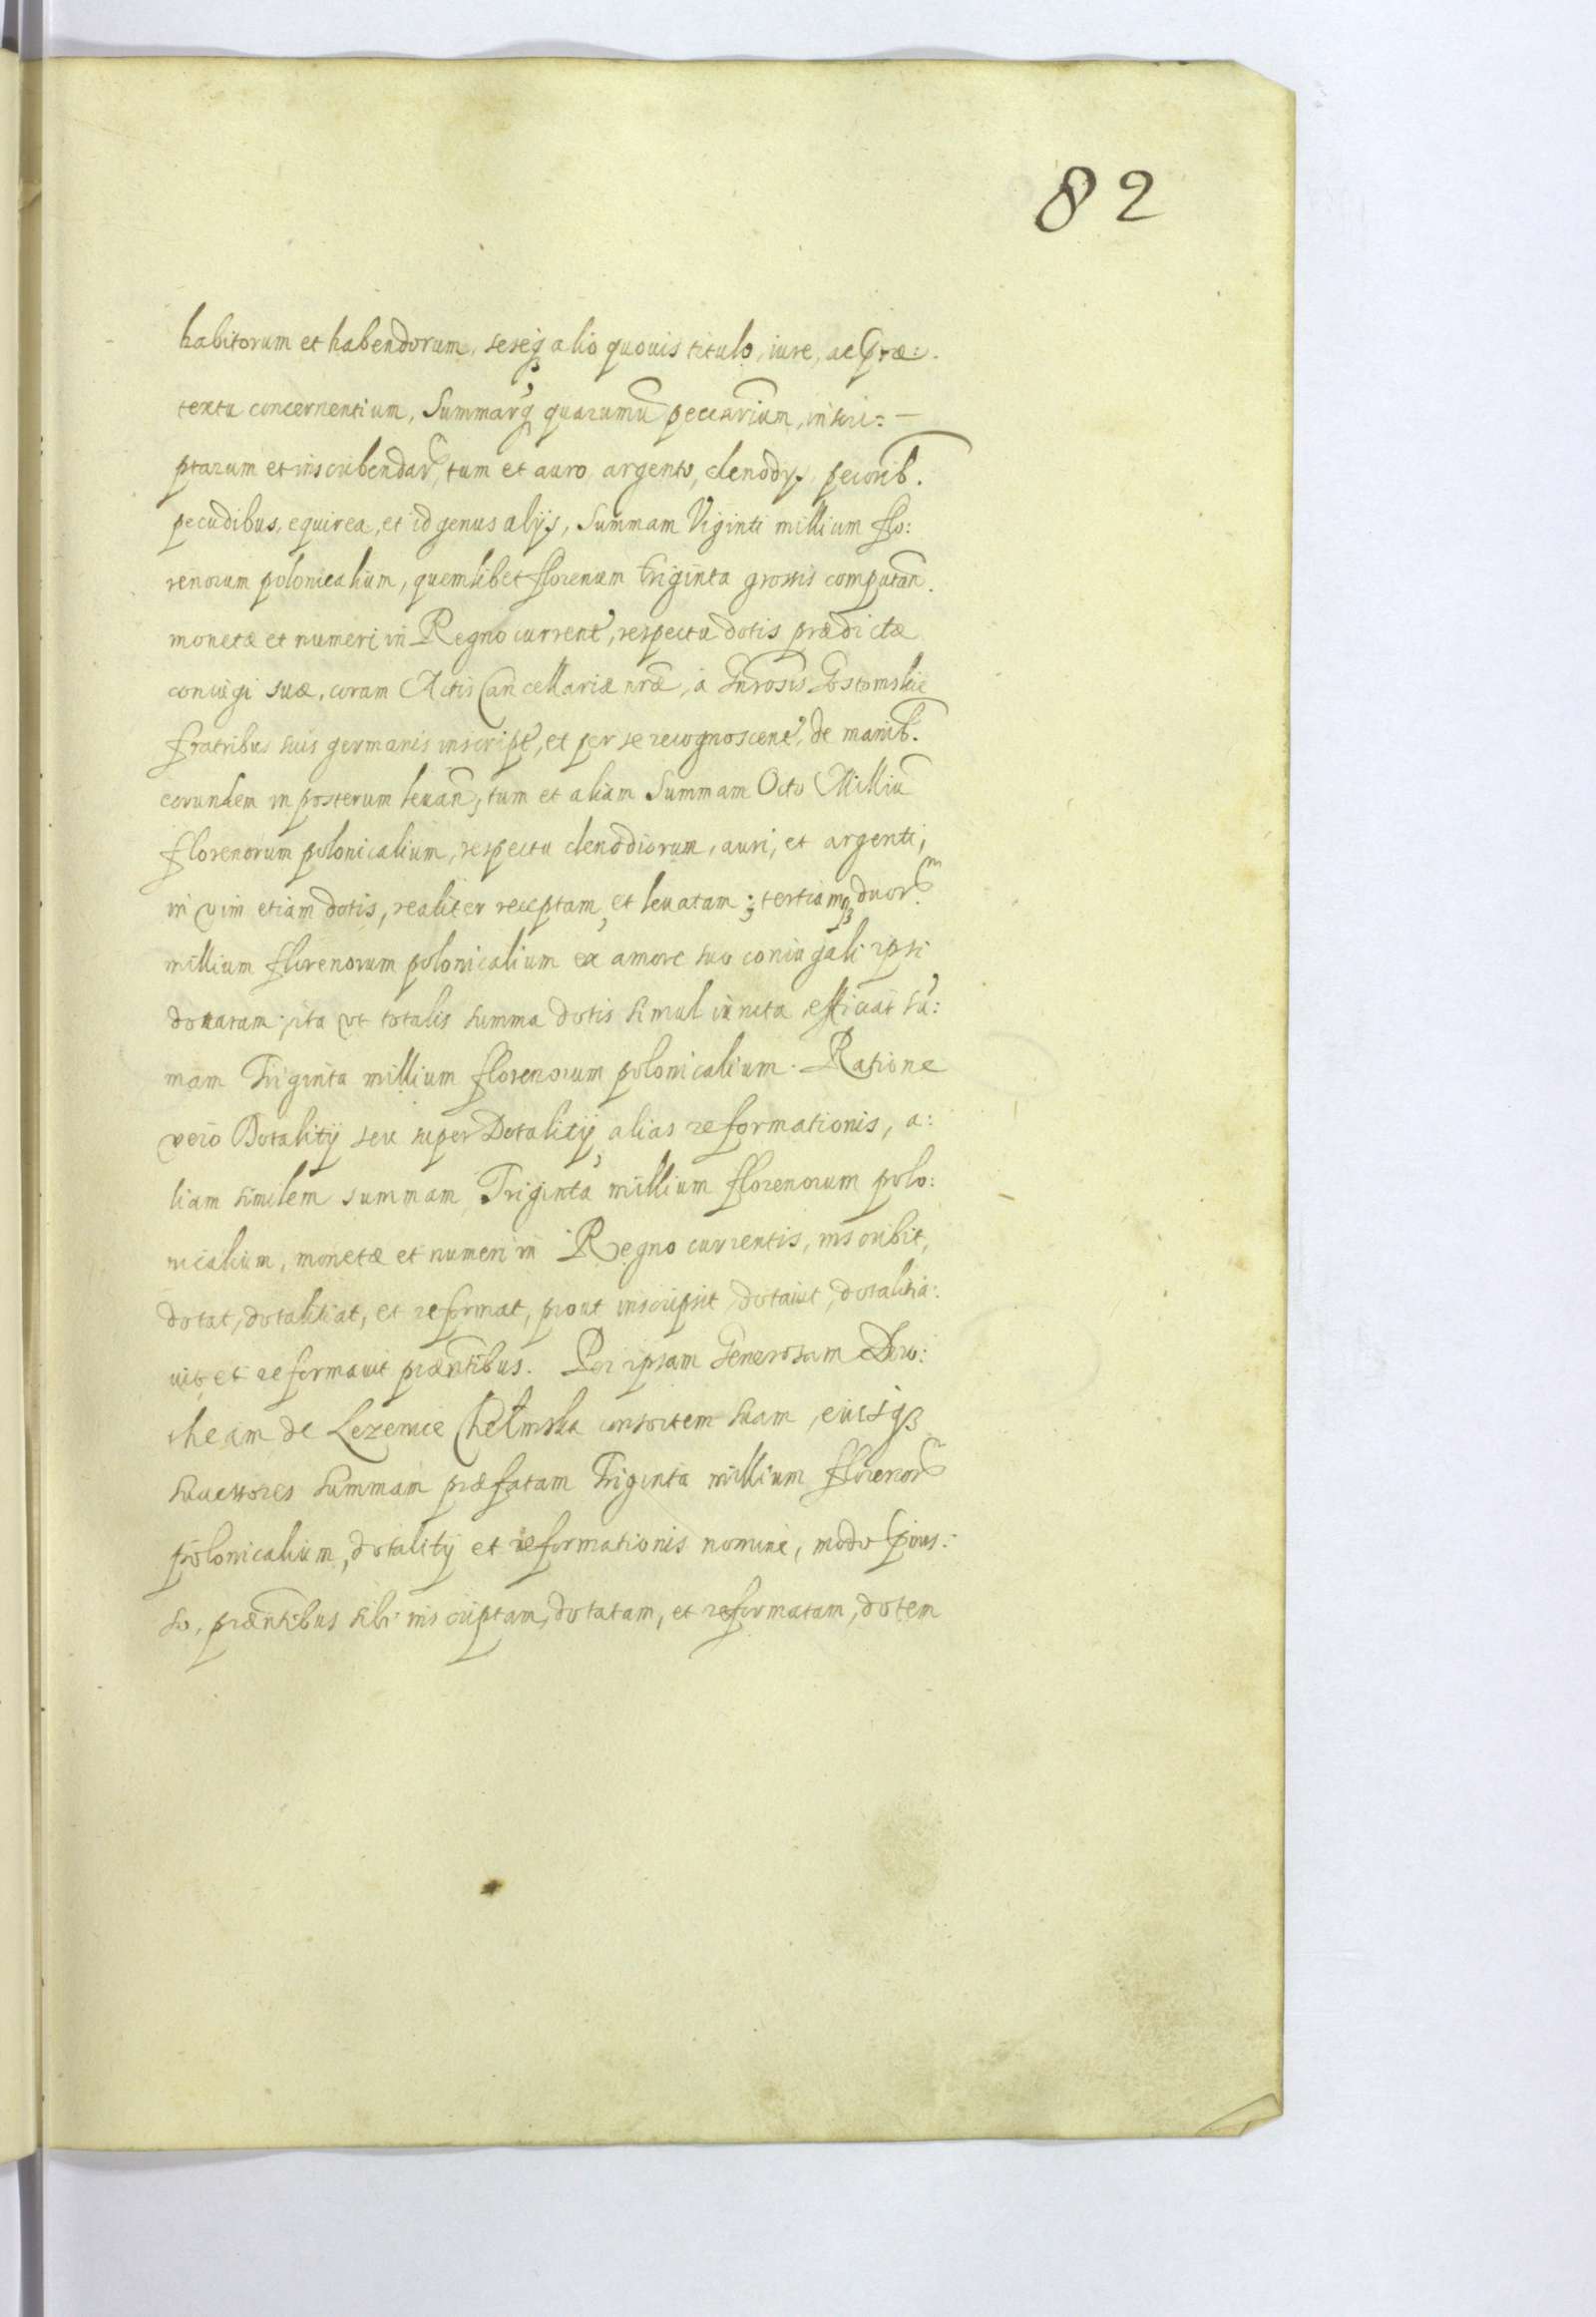 82
habitorum et habendorum, seseq3 alio quouis titulo, iure, ac præ:
textu concernentium, Summarq3 quarumu̅ pecc̅ariu̅m, inscri:
ptarum et inscribendar, tum et auro, argento, clenodys, pecorib.
pecudibus, equirea, et id genus alijs, Summam Viginti millium flo:
renorum polonicalium, quemlibet florenum triginta grossis computan̅.
monetæ et numeri in Regno current, respectu dotis prædictæ
coniugi suæ, coram Actis Cancellariæ nr̅æ, à Gnrosis Gostomskie
fratribus suis germanis inscript, et per se recognoscent, de manib.
eorundem in posterum leuan̅, tum et aliam Summam Octo Milliu̅
florenorum polonicalium, respectu clenodiorum, auri, et argenti,
in vim etiam dotis, realiter receptam, et leuatam; tertiamq3 duor.
millium florenorum polonicalium ex amore suo coniugali ipsi
donatam; ita vt totalis summa dotis simul iuncta efficiat su̅:
mam Triginta millium florenorum polonicalium. Ratione
vero Dotalitij seu super Dotalitij, alias reformationis, a:
liam similem summam Triginta millium florenorum polo:
nicalium, monetæ et numeri in Regno currentis, inscribit,
dotat, dotalitiat, et reformat, prout inscripsit, dotauit, dotalitia:
uit, et reformauit præntibus. Per ipsam Generosam Doro:
theam de Lezenice Chełmska consortem suam, eiusq3
successores summam præfatam Triginta millium florenor
polonicalium, dotalitij et reformationis nomine, modo præmis:
so, præntibus sibi inscriptam, dotatam, et reformatam, dotem